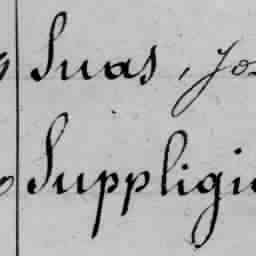 Suas, Jos
Suppligi